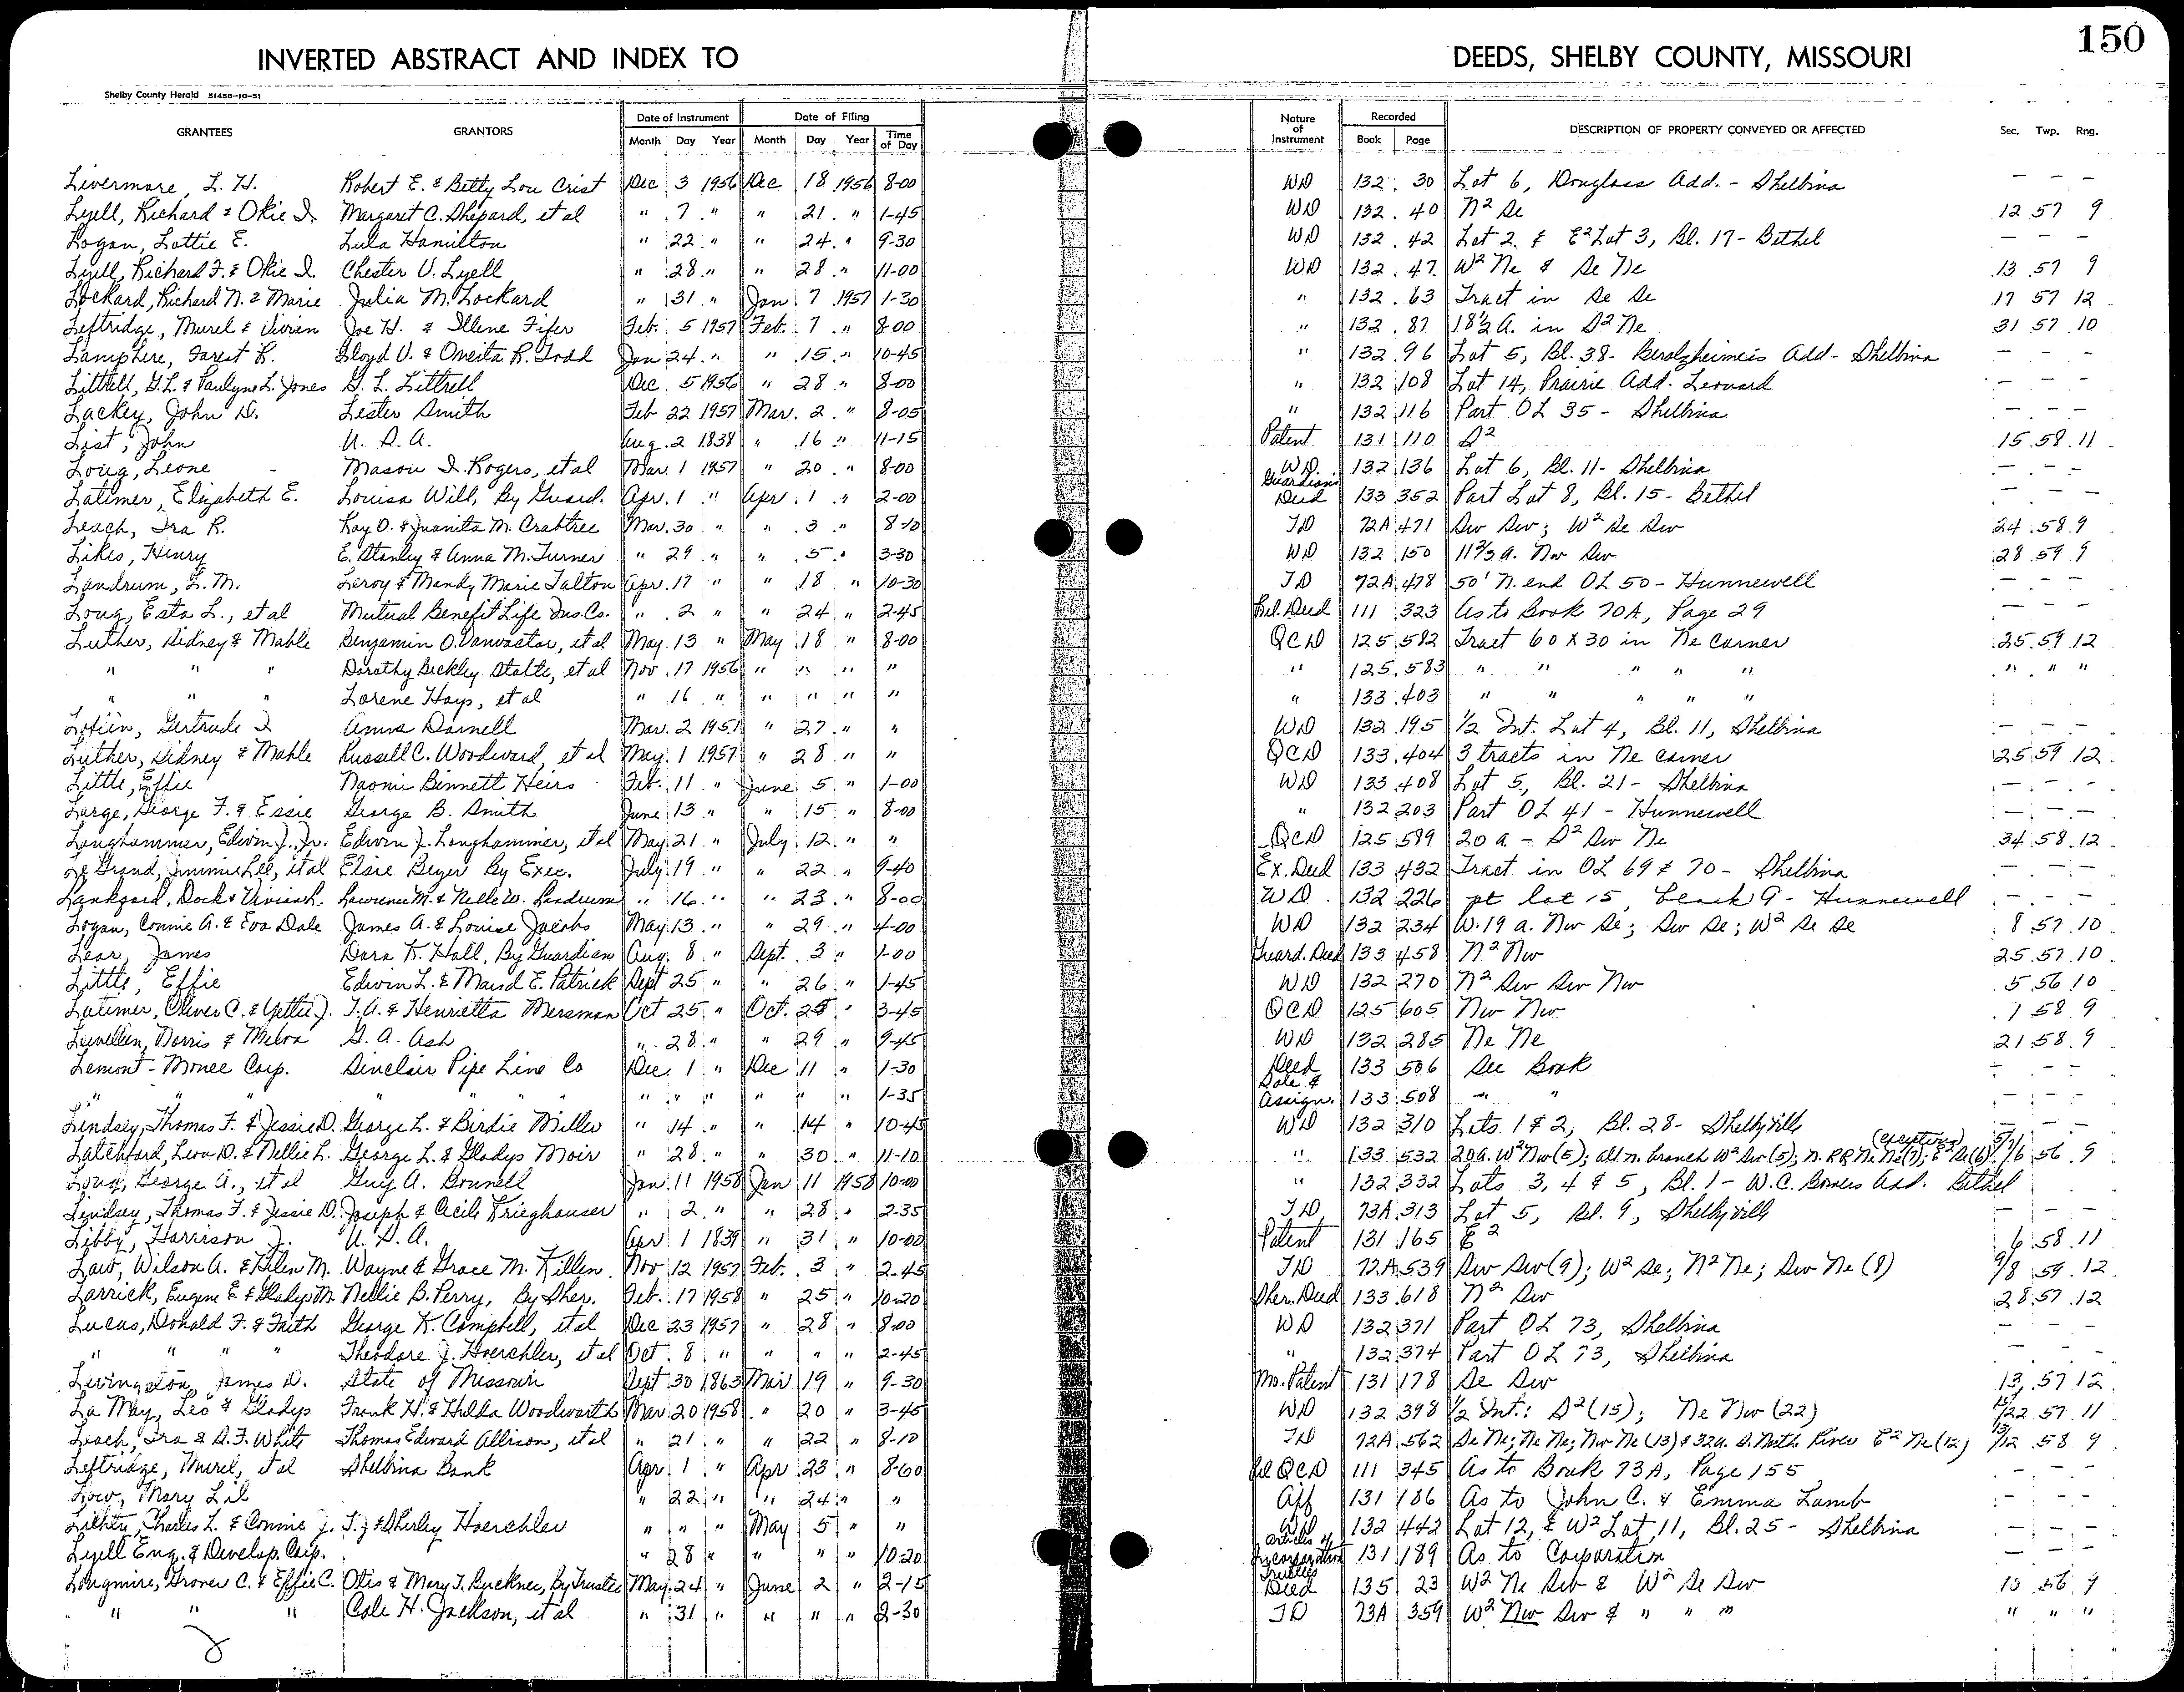 150
INVERTED ABSTRACT AND INDEX TO DEEDS, SHELBY COUNTY, MISSOURI
Shelby County Herald 51458-10-51
GRANTEES GRANTORS Date of Instrument Month Day Year Date of Filing Month Day Year Time of Day Nature of Instrument Recorded Book Page DESCRIPTION OF PROPERTY CONVEYED OR AFFECTED Sec. Twp. Rng.
Livermore, L. H. Robert E. & Betty Lou Crist Dec 3 1956 Dec 18 1956 8-00 WD 132 30 Lot 6, Douglass Add. - Shelbina - - -
Lyell, Richard & Okie I. Margaret C. Shepard, et al " 7 " " 21 " 1-45 WD 132 40 N2 Se 12 57 9
Logan, Lottie E. Lula Hamilton " 22 " " 24 " 9-30 WD 132 42 Lot 2 & E2 Lot 3, Bl. 17 - Bethel - - -
Lyell, Richard F. & Okie I. Chester V. Lyell " 28 " " 28 " 11-00 WD 132 47 W2 Ne & Se Ne 13 57 9
Lockard, Richard N. & Marie Julia M. Lockard " 31 " Jan. 7 1957 1-30 " 132 63 Tract in Se Se 17 57 12
Leftridge, Murel & Vivian Joe H. & Illene Fifer Feb. 5 1957 Feb. 7 " 8-00 " 132 87 18½ a. in S2 Ne 31 57 10
Lamphire, Forest R. Lloyd V. & Oneita R. Todd Jan 24 " " 15 " 10-45 " 132 96 Lot 5, Bl. 38 - Berolzheimeis Add - Shelbina - - -
Littrell, G.L. & Paulyne L. Jones G. L. Littrell Dec 5 1956 " 28 " 8-00 " 132 108 Lot 14, Prairie Add. Leonard - - -
Lackey, John D. Lester Smith Feb 22 1957 Mar. 2 " 8-05 " 132 116 Part OL 35 - Shelbina - - -
List, John U. S. A. Aug. 2 1838 " 16 " 11-15 Patent 131 110 S2 15 58 11
Loug, Leone Mason I. Rogers, et al Mar. 1 1957 " 20 " 8-00 WD 132 136 Lot 6, Bl. 11 - Shelbina - - -
Latimer, Elizabeth E. Louisa Will, By Guard. Apr. 1 " Apr. 1 " 2-00 Guardians Deed 133 352 Part Lot 8, Bl. 15 - Bethel - - -
Leach, Ira R. Ray O. & Juanita M. Crabtree Mar. 30 " " 3 " 8-10 TD 72A 471 Sw Sw; W2 Se Sw 24 58 9
Likes, Henry E. Stanley & Anna M. Turner " 29 " " 5 " 3-30 WD 132 150 11⅔ a. Nw Sw 28 59 9
Landrum, L. M. Leroy & Mandy Marie Talton Apr. 17 " " 18 " 10-30 TD 72A 478 50' N. end OL 50 - Hunnewell - - -
Loug, Esta L., et al Mutual Benefit Life Ins. Co. " 2 " " 24 " 2-45 Rel. Deed 111 323 As to Book 70A, Page 29 - - -
Luther, Sidney & Mable Benjamin O. Vanvactor, et al May 13 " May 18 " 8-00 QCD 125 582 Tract 60 X 30 in Ne corner 25 59 12
" " " Dorothy Bickley Stalte, et al Nov. 17 1956 " " " " " 125 583 " " " " " " " "
" " " Lorene Hays, et al " 16 " " " " " " 133 403 " " " " "
Lofiin, Gertrude I Anna Darnell Mar. 2 1951 " 27 " " WD 132 195 ½ Int. Lot 4, Bl. 11, Shelbina - - -
Luther, Sidney & Mable Russell C. Woodward, et al May 1 1957 " 28 " " QCD 133 404 3 tracts in Ne corner 25 59 12
Little, Effie Naomi Bennett Heirs Feb. 11 " June 5 " 1-00 WD 133 408 Lot 5, Bl. 21 - Shelbina - - -
Large, George F. & Essie George B. Smith June 13 " " 15 " 8-00 " 132 203 Part OL 41 - Hunnewell - - -
Langhammer, Edwin J., Jr. Edwin J. Longhammer, et al May 21 " July 12 " " QCD 125 589 20 a - S2 Sw Ne 34 58 12
Le Grand, Jimmie Lee, et al Elsie Beyer By Exec. July 19 " " 22 " 9-40 Ex. Deed 133 432 Tract in OL 69 & 70 - Shelbina - - -
Lankford, Dock & Vivian L. Lawrence M. & Nelle W. Landrum " 16 " " 23 " 8-00 WD 132 226 pt lot 15, block 9 - Hunnewell - - -
Logan, Connie A. & Eva Dale James A. & Louise Jacobs May 13 " " 29 " 4-00 WD 132 234 W. 19 a. Nw Se; Sw Se; W2 Se Se 8 57 10
Lear, James Dora K. Hall, By Guardian Aug. 8 " Sept. 3 " 1-00 Guard. Deed 133 458 N2 Nw 25 57 10
Little, Effie Edwin L. & Maud E. Patrick Sept 25 " " 26 " 1-45 WD 132 270 N2 Sw Sw Nw 5 56 10
Latimer, Oliver C. & Yettie J. T.A. & Henrietta Mersman Oct 25 " Oct. 28 " 3-45 QCD 125 605 Nw Nw 1 58 9
Lewellen, Norris & Melva G. A. Ash " 28 " " 29 " 9-45 WD 132 285 Ne Ne 21 58 9
Lemont - Monee Corp. Sinclair Pipe Line Co Dec. 1 " Dec 11 " 1-30 Deed 133 506 See Book - - -
" " " " " " " " " " " " " 1-35 Sale & Assign. 133 508 " "
Lindsey, Thomas F. & Jessie D. George L. & Birdie Miller " 14 " " 14 " 10-45 WD 132 310 Lots 1 & 2, Bl. 28 - Shelbyville - - -
Latchford, Leon D. & Nellie L. George L. & Gladys Moir " 28 " " 30 " 11-10 " 133 532 20a. W2 Nw (5); all n. branch W2 Sw (5); N. RR Ne Ne (7); E2 Se (6) (exceptions) 5/7/6 56 9
Loug, George A., et al Guy A. Bunnell Jan. 11 1958 Jan 11 1958 10-00 " 132 332 Lots 3, 4 & 5, Bl. 1 - W.C. Bowers Add. Bethel
Lindsey, Thomas F. & Jessie D. Joseph & Cecile Krieghauser " 2 " " 28 " 2-35 TD 73A 313 Lot 5, Bl. 9, Shelbyville - - -
Libby, Harrison J. U. S. A. Apr 1 1839 " 31 " 10-00 Patent 131 165 E2 6 58 11
Law, Wilson A. & Helen M. Wayne & Grace M. Killen Nov. 12 1957 Feb. 3 " 2-45 TD 72A 539 Sw Sw (9); W2 Se; N2 Ne; Sw Ne (8) 9/8 59 12
Larrick, Eugene E. & Gladys M. Nellie B. Perry, By Sher. Feb. 17 1958 " 25 " 10-20 Sher. Deed 133 618 N2 Sw 28 57 12
Lucas, Donald F. & Faith George K. Campbell, et al Dec 23 1957 " 28 " 8-00 WD 132 371 Part OL 73, Shelbina - - -
" " " " Theodore J. Hoerchler, et al Oct. 8 " " " " 2-45 " 132 374 Part OL 73, Shelbina - - -
Livingston, James D. State of Missouri Sept 30 1863 Mar 19 " 9-30 Mo. Patent 131 178 Se Sw 13 57 12
La May, Leo & Gladys Frank H. & Hulda Woodworth Mar. 20 1958 " 20 " 3-45 WD 132 398 ½ Int.: S2 (15); Ne Nw (22) 15/22 57 11
Leach, Ira & D.F. White Thomas Edward Allison, et al " 21 " " 22 " 8-10 TD 72A 562 Se Ne; Ne Ne; Nw Ne (13) & 32a. S. North River E2 Ne (12) 13/12 58 9
Leftridge, Murel, et al Shelbina Bank Apr 1 " Apr 23 " 8-60 Rel QCD 111 345 As to Book 73A, Page 155 - - -
Low, Mary Lil " 22 " " 24 " " Aff 131 186 As to John C. & Emma Lamb - - -
Lichty, Charles L. & Connie J. T.J. & Shirley Hoerchler " " " May 5 " " WD 132 442 Lot 12, & W2 Lot 11, Bl. 25 - Shelbina - - -
Lyell Eng. & Develop. Corp. " 28 " " " " 10-20 Articles of Incorporation 131 189 As to Corporation - - -
Longmire, Grover C. & Effie C. Otis & Mary T. Buckner, By Trustee May 24 " June 2 " 2-15 Trustees Deed 135 23 W2 Ne Sw & W2 Se Sw 10 56 9
" " " Cole H. Jackson, et al " 31 " " " " 2-30 TD 73A 359 W2 Nw Sw & " " " " " "